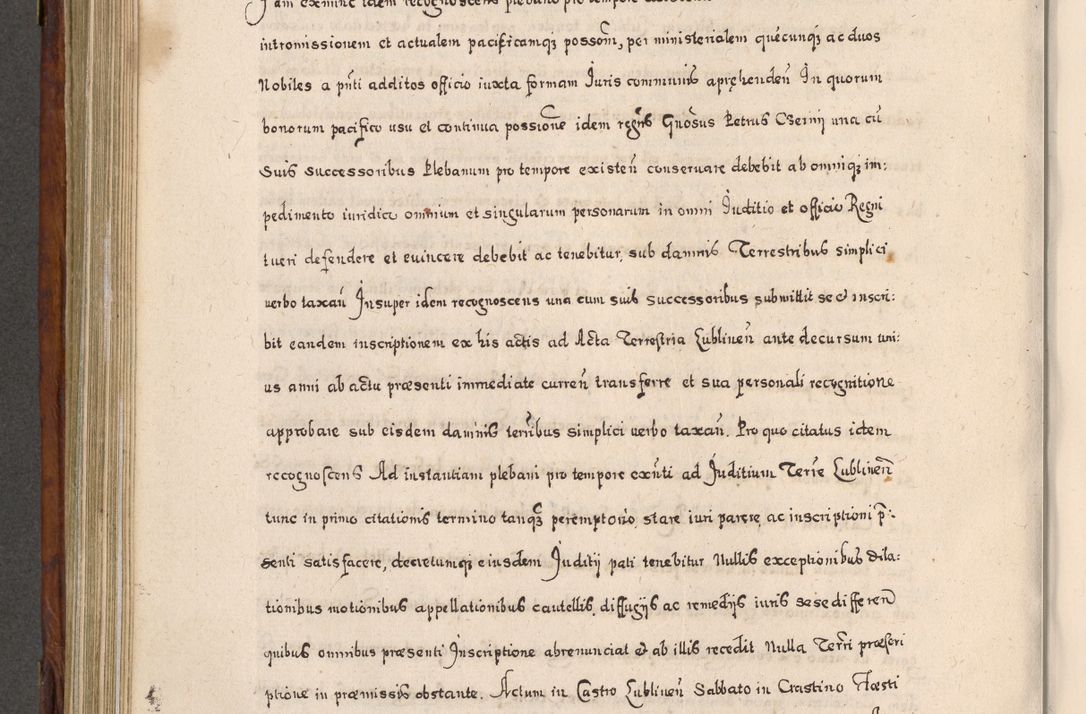 Jam ex nunc idem recognoscens plebano pro tempore
intromissionem et actualem pacificamqȝ possom̃, per ministerialem quęcunqȝ ac duos
Nobiles a pñti additos officio iuxta formam Juris communis apręhendeñ In quorum
bonorum pacifico usu et continua possione idem regñs Gñosus Petrus Cserny una cũ
suis successoribus Plebanum pro tempore existeñ conseruare debebit ab omniqȝ im:
pedimento iuridico omnium et singularum personarum in omni Juditio et officio Regni
tueri defendere et euincere debebit ac tenebitur, sub damnis Terrestribus simplici
uerbo taxañ Insuper idem recognoscens una cum suis successoribus submittit se & inscri:
bit eandem inscriptionem ex his actis ad Acta Terrestria Lublineñ ante decursum uni:
us anni ab actu præsenti immediate curreñ transferre et sua personali recognitione
approbare sub eisdem damnis terribus simplici uerbo taxañ. Pro quo citatus idem
recognoscens Ad instantiam plebani pro tempore exñti ad Juditium Terre Lublineñ
tunc in primo citationis termino tanqȝ peremptorio stare iuri parere ac inscriptioni p̃:
senti satisfacere, decretumqȝ eiusdem Juditij pati tenebitur Nullis exceptionibus dila:
tionibus motionibus appellationibus cautellis, diffugijs ac remedijs iuris sese differeñ
quibus omnibus præsenti Inscriptione abrenunciat & ab illis recedit Nulla Terri præscri
ptione in præmissis obstante. Actum in Castro Lublineñ Sabbato in Crastino Festi